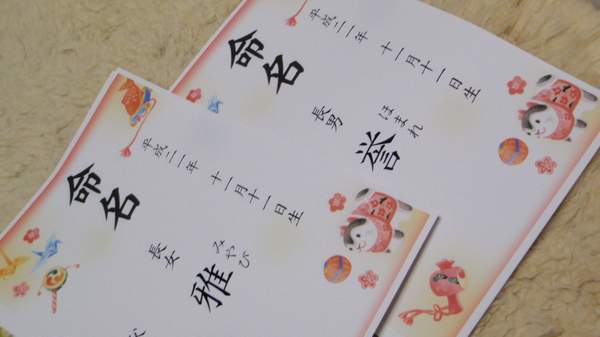 命名
平成二一年 十一月十一日生
長男
誉
ほまれ
命名
平成二一年 十一月十一日生
長女
雅
みやび